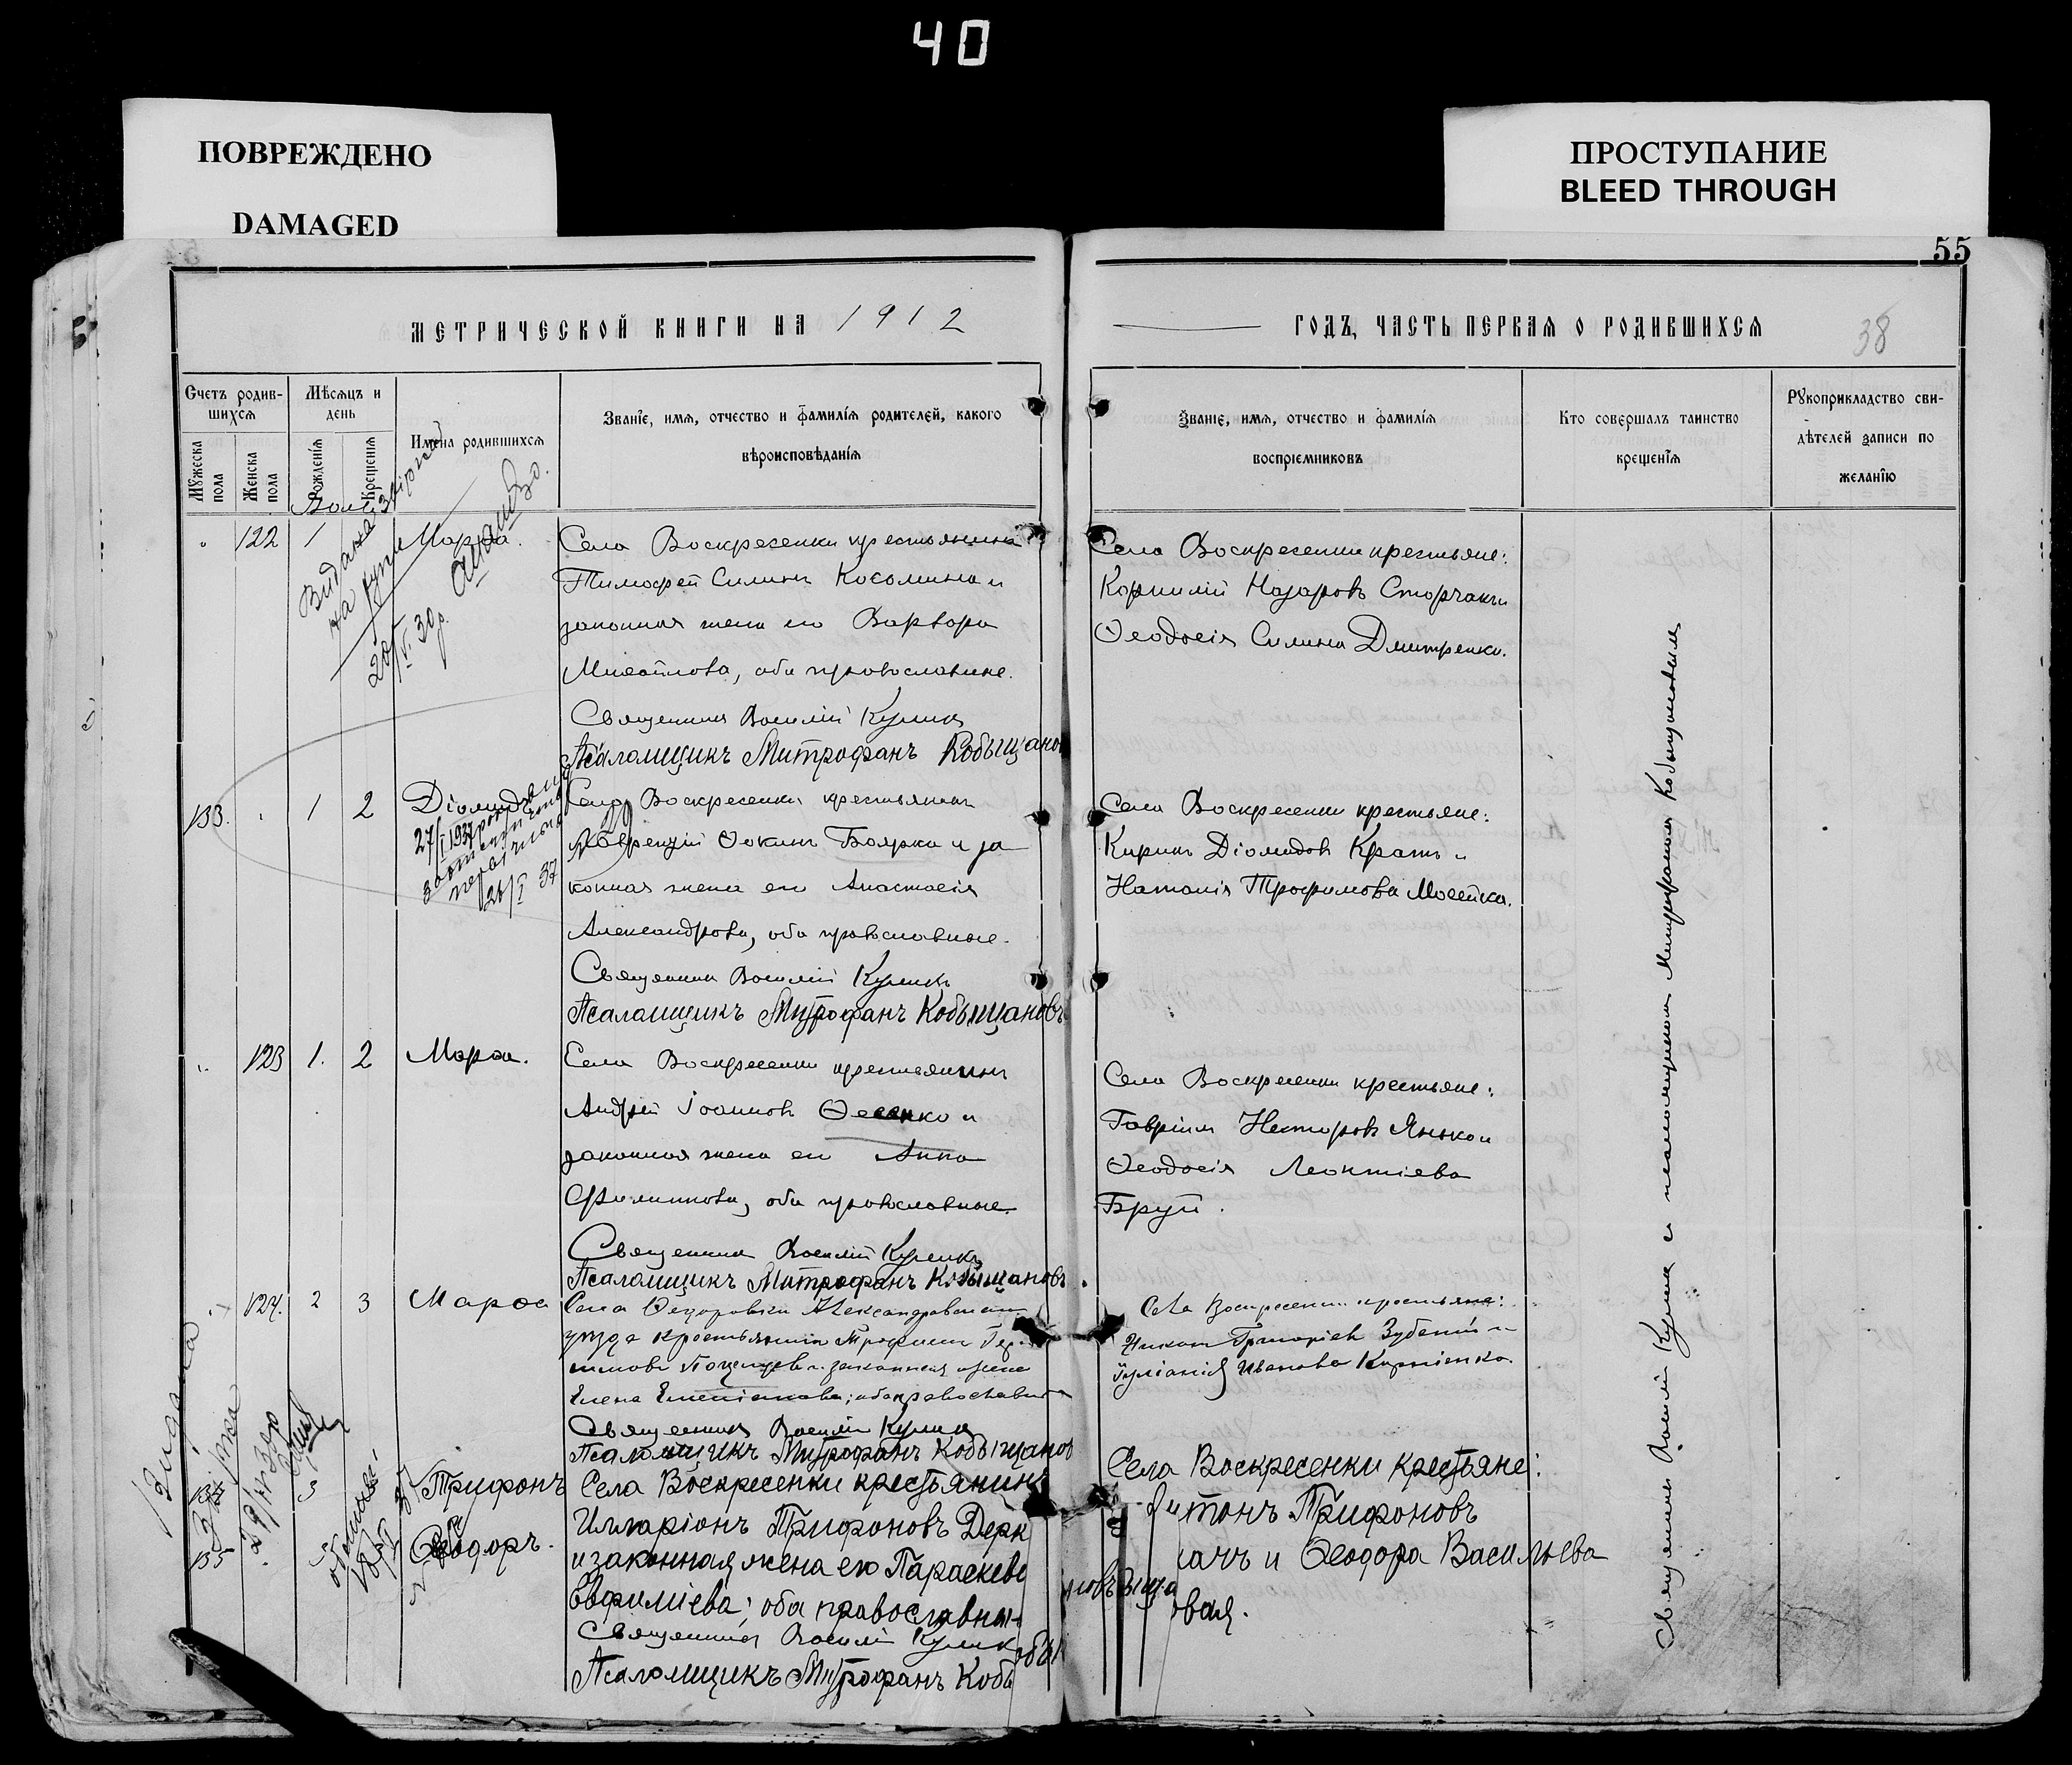 40
ПОВРЕЖДЕНО
DAMAGED
ПРОСТУПАНИЕ
BLEED THROUGH
55
МЕТРИЧЕСКОЙ КНИГИ НА 1912
ГОДЪ, ЧАСТЬ ПЕРВАЯ О РОДИВШИХСЯ
38
Счетъ родив-
шихся
Мѣсяцъ и
день
Имена родившихся
Званіе, имя, отчество и фамилія родителей, какого
вѣроисповѣданія
Мужеска
пола
Женска
пола
Рожденія
Крещенія
Званіе, имя, отчество и фамилія
воспріемниковъ
Кто совершалъ таинство
крещенія
Рукоприкладство сви-
дѣтелей записи по
желанію
122 1 Марѳа.
Видана
на руки
20/V. 30р.
Села Воскресенки крестьянинъ
Тимофей Силинъ Косолина и
законная жена его Варвара
Михайлова, оба православные.
Священникъ Василій Куликъ
Псаломщикъ Митрофанъ Кобыщановъ
Села Воскресенки крестьяне:
Корнилій Назаровъ Сторчакъ и
Ѳеодосія Силина Дмитренко.
133. 1 2 Діомидъ
27/I 1937
26/I 37
Села Воскресенки крестьянинъ
Лаврентій Ѳокинъ Боярко и за
конная жена его Анастасія
Александрова, оба православные.
Священникъ Василій Куликъ
Псаломщикъ Митрофанъ Кобыщановъ
Села Воскресенки крестьяне:
Киринъ Діомидовъ Кратъ и
Наталія Трофимова Мосейко.
123 1. 2 Марѳа.
Села Воскресенки крестьянинъ
Андрей Іоанновъ Ѳесенко и
законная жена его Анна
Филиппова, оба православные.
Священникъ Василій Куликъ
Псаломщикъ Митрофанъ Кобыщановъ.
Села Воскресенки крестьяне:
Гавріилъ Несторовъ Янько и
Ѳеодосія Леонтіева
Бруй.
124. 2 3 Марѳа
Села Ѳедоровки Александровскаго
уѣзда крестьянинъ Трофимъ
и законная жена
Елена; оба православн
Священникъ Василій Куликъ
Псаломщикъ Митрофанъ Кобыщанов
Села Воскресенки крестьяне:
Никонъ Григоріевъ Зубенко и
Іуліанія Иванова Корніенко.
Видана
135
Трифонъ
Ѳеодоръ.
Села Воскресенки крестьянинъ
Иларіонъ Трифоновъ Дерк
и законная жена его Параскева
Евфиміева; оба православны-
Священникъ Василій Кулик
Псаломщикъ Митрофанъ Кобы
Села Воскресенки крестьяне:
итонъ Трифоновъ
ачъ и Ѳеодора Васильева
овая.
Священникъ Василій Куликъ с псаломщикомъ Митрофаномъ Кобыщановымъ